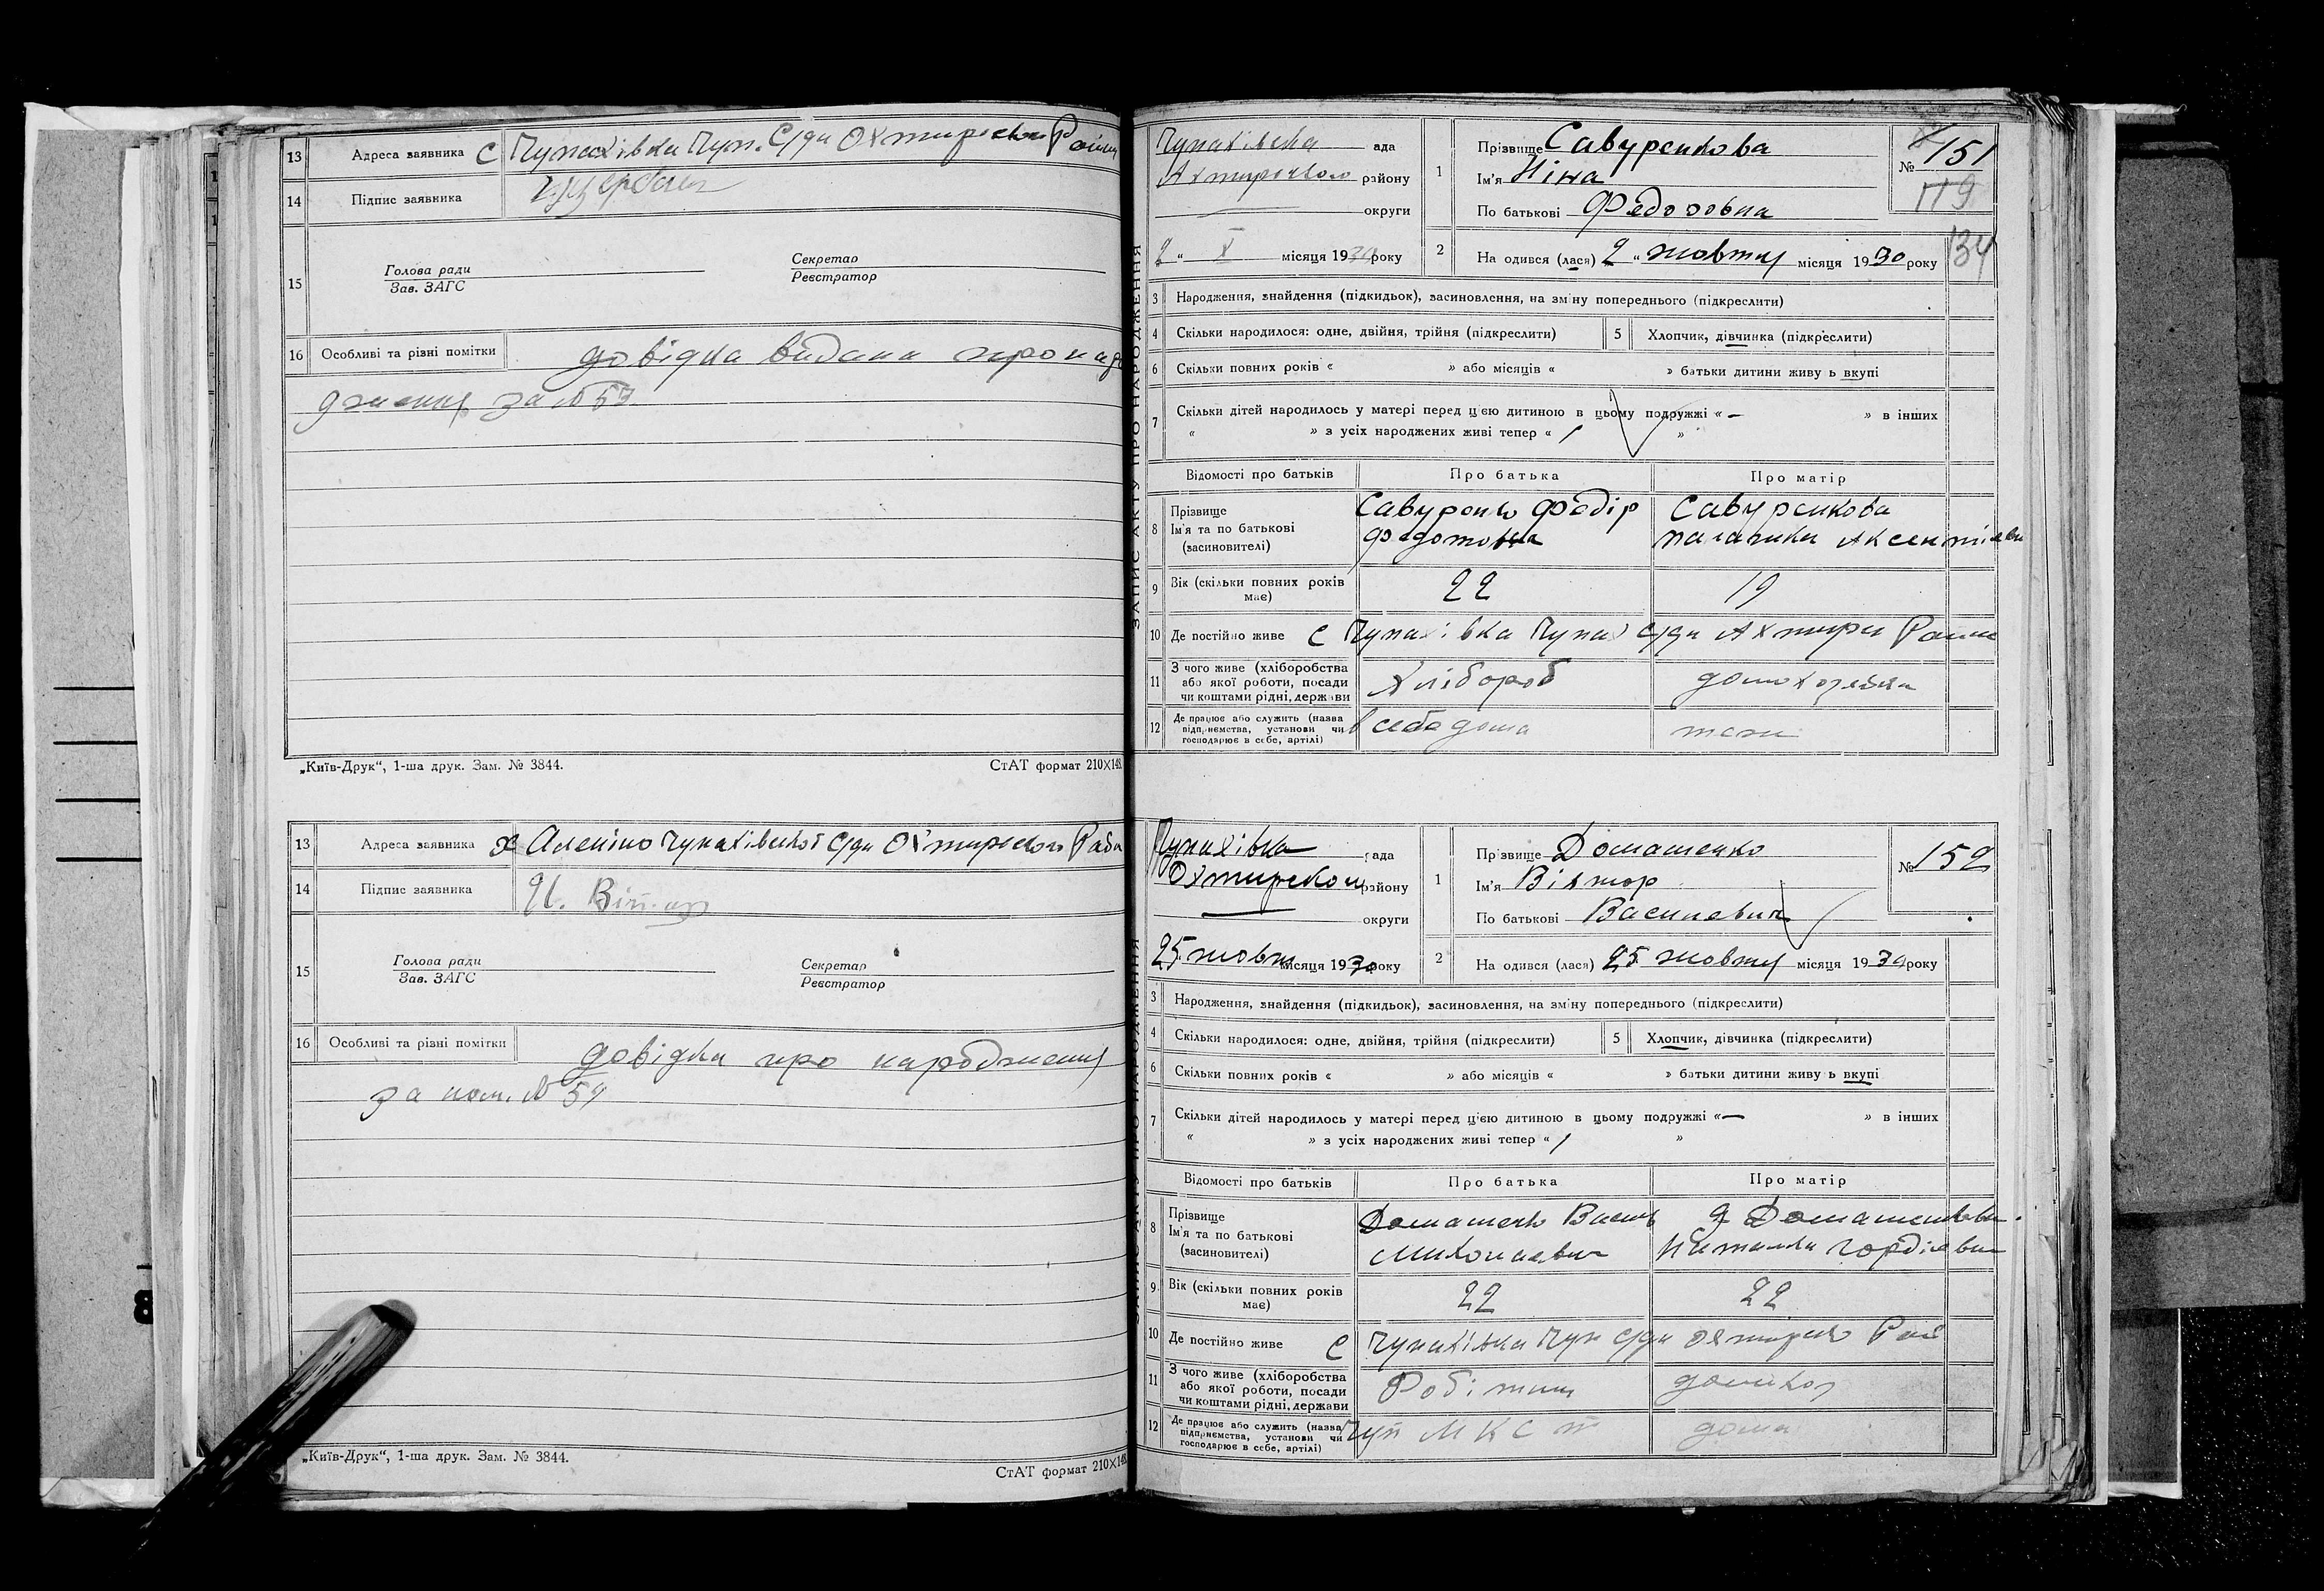 13 Адреса заявника с Чупахівка Чуп. С/ди Охтирсько Район
14 Підпис заявника
15 Голова ради
Зав. ЗАГС
Секретар
Реєстратор
16 Особливі та різні помітки довідка видана про народ
ження за № 53
„Київ-Друк“, 1-ша друк. Зам. № 3844. СтАТ формат 210×148
13 Адреса заявника х Чупахівської С/ди Охтирского
14 Підпис заявника
15 Голова ради
Зав. ЗАГС
Секретар
Реєстратор
16 Особливі та різні помітки довідка про народження
за ном. № 54
„Київ-Друк“, 1-ша друк. Зам. № 3844.
СтАТ формат 210×148
ЗАПИС АКТУ ПРО НАРОДЖЕННЯ
Чупахівська ада
Ахтирського району
округи
2 “ X місяця 1930 року
1 Прізвище Савуренкова
Ім'я Ніна
По батькові Федоровна
№ 151
119
134
2 На одився (лася) 2 “ жовтня місяця 1930 року
3 Народження, знайдення (підкидьок), васиновлення, на зміну попереднього (підкреслити)
4 Скільки народилося: одне, двійня, трійня (підкреслити) 5 Хлопчик, дівчинка (підкреслити)
6 Скільки повних років « » або місяців « » батьки дитини живу ь вкупі
7 Скільки дітей народилось у матері перед цією дитиною в цьому подружжі « — » в інших
« » з усіх народжених живі тепер « 1 »
Відомості про батьків Про батька Про матір
8 Прізвище
Ім'я та по батькові
(васиновителі)
Савуренко Федір
Федотов
Савуренкова
Палажка Аксентіевн
9 Вік (скільки повних років має) 22 19
10 Де постійно живе с Чупахівка Чупах С/ди Ахтирс Район
11 З чого живе (хліборобства
або якої роботи, посади
чи коштами рідні, держави
Хлібороб домохозяйка
12 Де працює або служить (назва
підприємства, установи чи
господарює в себе, артілі)
в себе дома
Чупахівка рада
Охтирском району
округи
25 жовтн місяця 1930 року
1 Прізвище Домашенко
Ім'я Віктор
По батькові Васильевич
№ 152
2 На одився (лася) 25 жовтня місяця 1930 року
3 Народження, знайдення (підкидьок), васиновлення, на зміну попереднього (підкреслити)
4 Скільки народилося: одне, двійня, трійня (підкреслити) 5 Хлопчик, дівчинка (підкреслити)
6 Скільки повних років « » або місяців « » батьки дитини живу ь вкупі
7 Скільки дітей народилось у матері перед цією дитиною в цьому подружжі « — » в інших
« » з усіх народжених живі тепер « 1 »
Відомості про батьків Про батька Про матір
8 Прізвище
Ім'я та по батькові
(васиновителі)
Домашенко Василь
Миколаевич
Домашенкова
Наталка Гордіевна
9 Вік (скільки повних років має) 22 22
10 Де постійно живе с Чупахівка Чуп С/ди Охтирсько Рай
11 З чого живе (хліборобства
або якої роботи, посади
чи коштами рідні, держави
Робітник домохоз
12 Де працює або служить (назва
підприємства, установи чи
господарює в себе, артілі)
Чуп дома